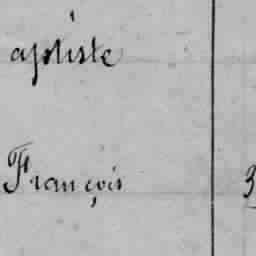 aptiste
François 3